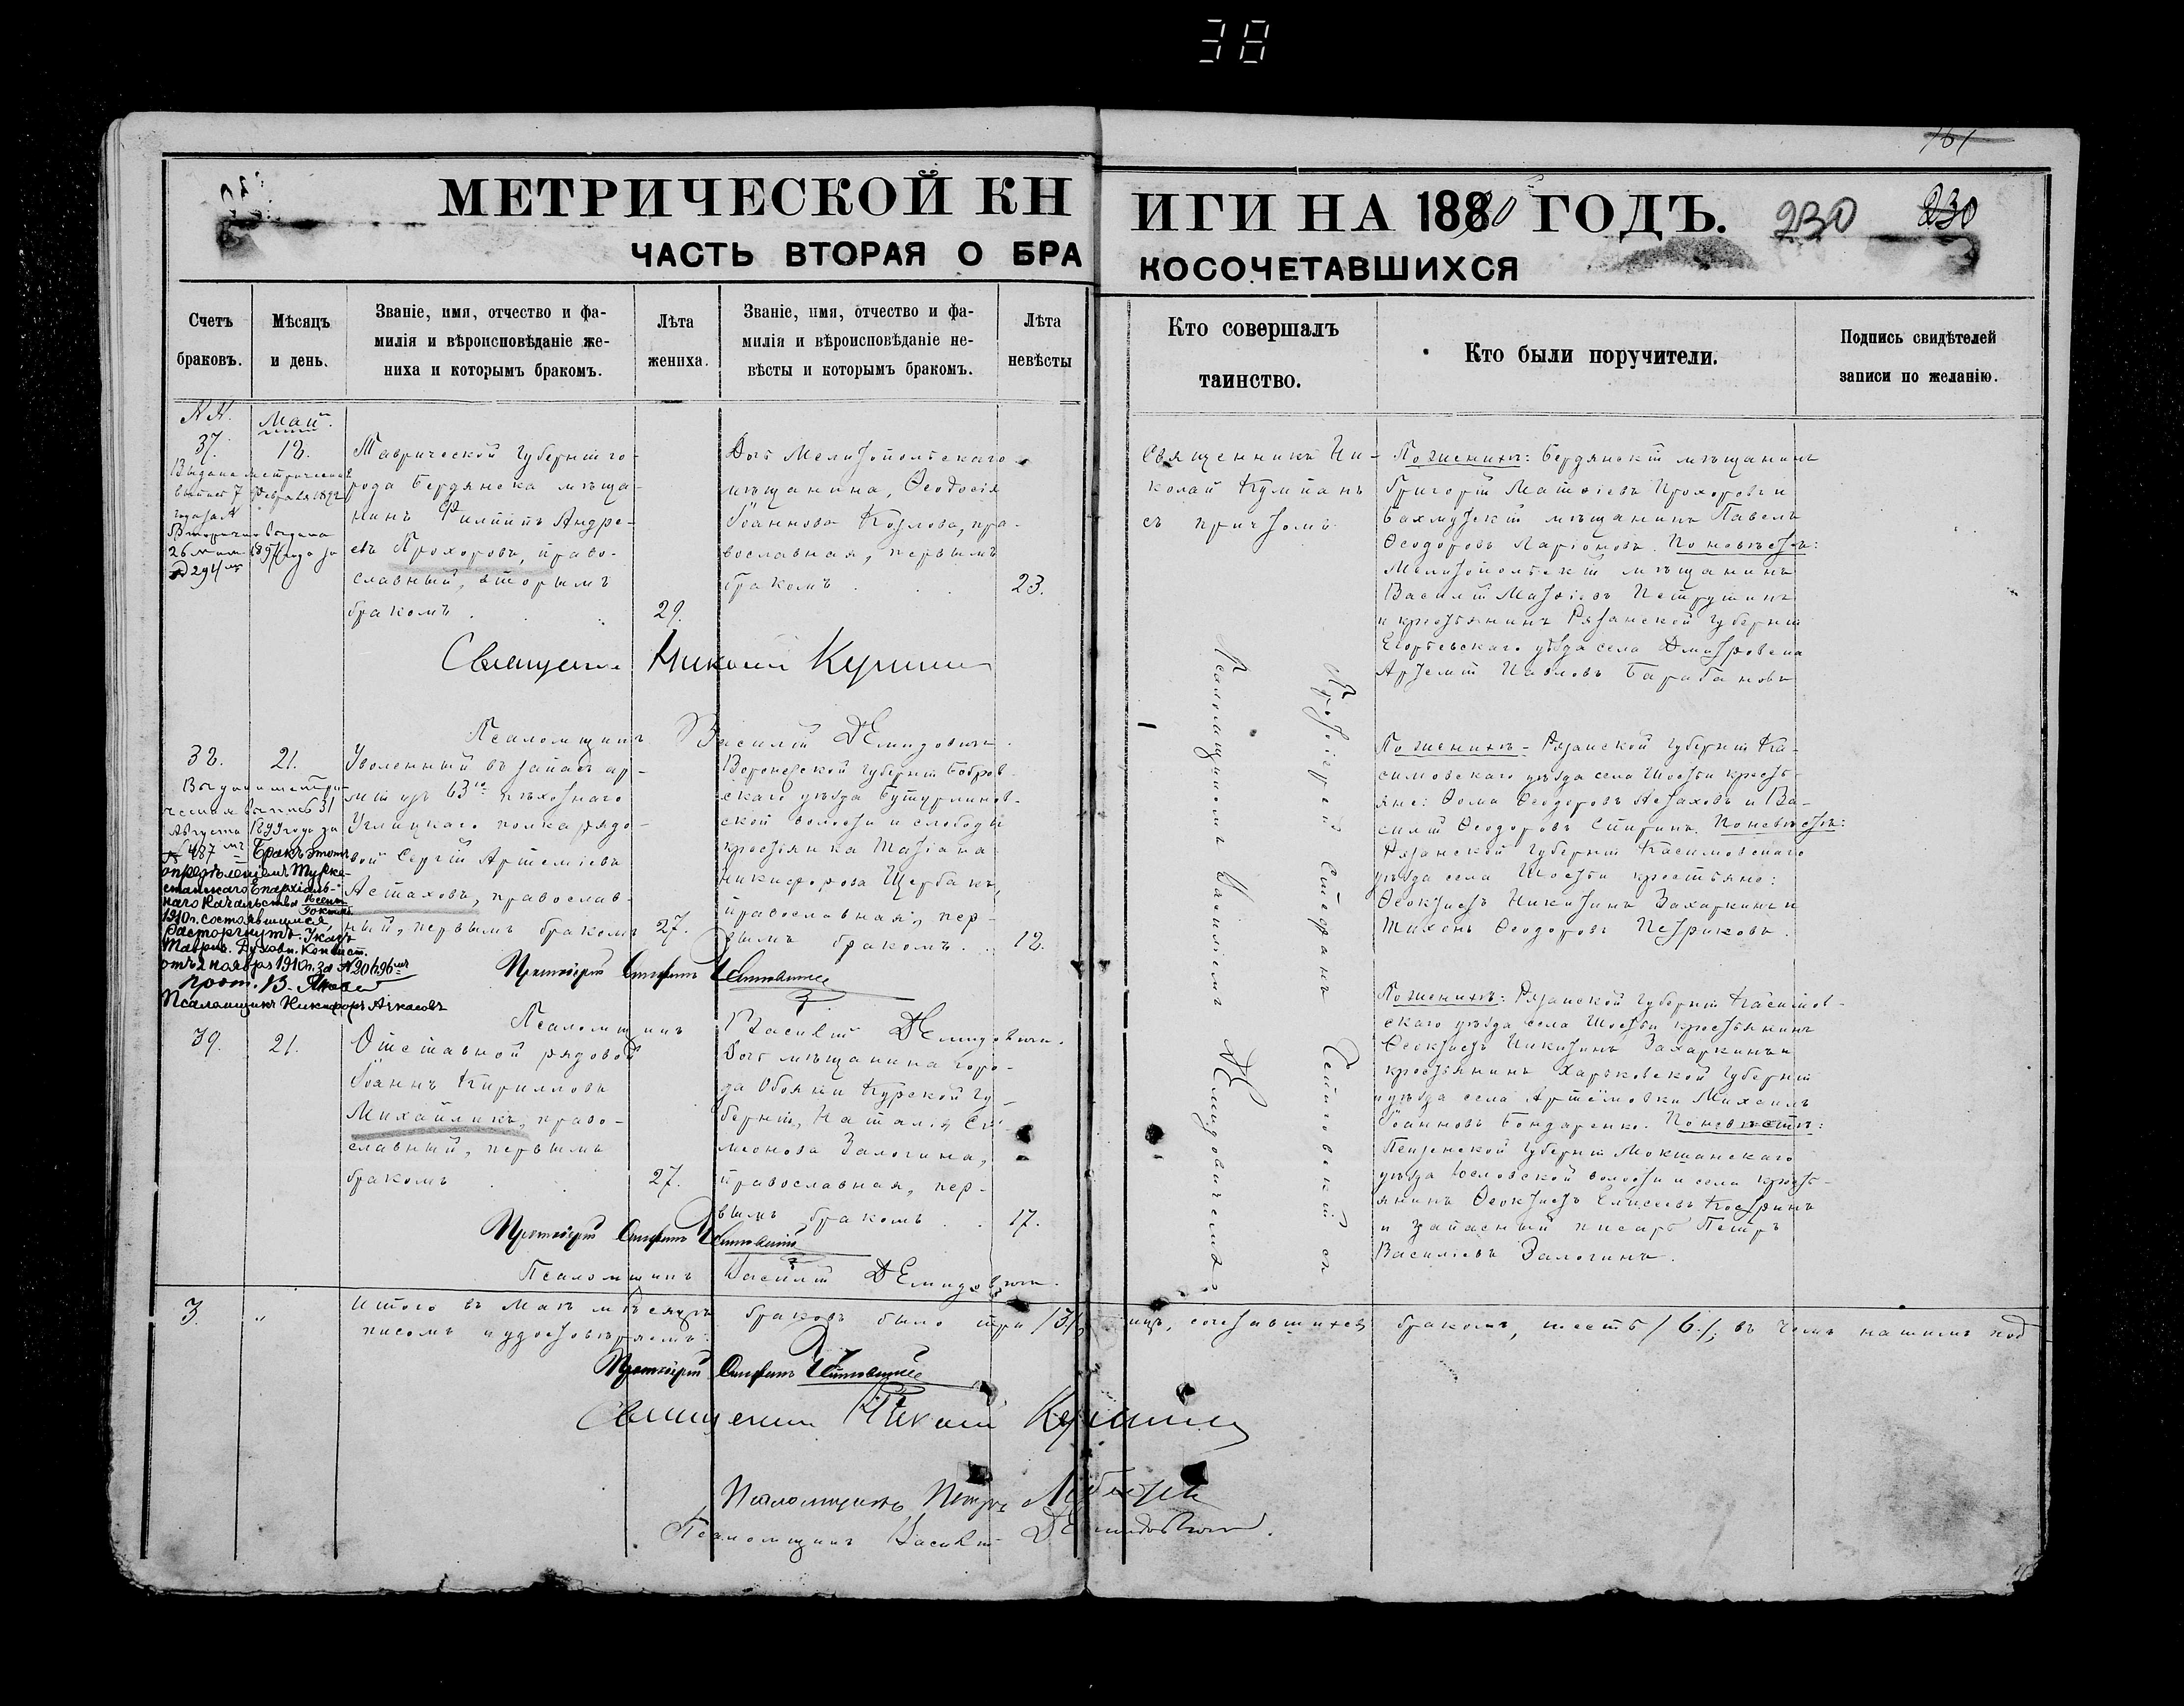 38
161
МЕТРИЧЕСКОЙ КНИГИ НА 1890 ГОДЪ. 230 230
ЧАСТЬ ВТОРАЯ О БРАКОСОЧЕТАВШИХСЯ
Счетъ
браковъ.
Мѣсяцъ
и день.
Званіе, имя, отчество и фа-
милія и вѣроисповѣданіе же-
ниха и которымъ бракомъ.
Лѣта
жениха.
Званіе, имя, отчество и фа-
милія и вѣроисповѣданіе не-
вѣсты и которымъ бракомъ.
Лѣта
невѣсты
Кто совершалъ
таинство.
Кто были поручители.
Подпись свидѣтелей
записи по желанію.
NN.
Май.
37.
12.
Выдана метрическая
выпись 7 Февраля 1892
года за №
Вторично выдана
26 мая 1897 года за
№ 294
Таврической губерніи го-
рода Бердянска мѣща-
нинъ Филиппъ Андре-
евъ Прохоровъ, право-
славный, вторымъ
бракомъ
29.
Дочь Мелитопольскаго
мѣщанина, Ѳеодосія
Іоаннова Козлова, пра-
вославная, первымъ
бракомъ
23.
Священникъ Ни-
колай
съ причтомъ
По женихѣ: Бердянскій мѣщанинъ
Григорій Матѳіевъ Прохоровъ и
Бахмутскій мѣщанинъ Павелъ
Ѳеодоровъ Ларіоновъ. По невѣстѣ:
Мелитопольскій мѣщанинъ
Василій Матѳіевъ Петрушинъ
и крестьянинъ Рязанской губерніи
Егорьевскаго уѣзда села Дмитровена
Артемій Павловъ Барабановъ
Священникъ Николай
Псаломщикъ Василій Демидовичъ.
38.
21.
Выдана метри-
ческая выпись 31
Августа 1899 года за
№ 487 Бракъ этотъ
опредѣленіемъ Турке-
станскаго Епархіаль-
наго Начальства
1910 г. состоявшимся,
расторгнутъ. Указъ
Таврич. Духовн. Консист.
отъ 2 ноября 1910 г. за № 20696
Псаломщикъ Никифоръ Ачкасовъ
Уволенный въ запасъ ар-
міи изъ 63го пѣхотнаго
Углицкаго полка рядо-
вой Сергій Артеміевъ
Астаховъ, православ-
ный, первымъ бракомъ
27.
Воронежской губерніи Бобров-
скаго уѣзда Бутурлинов-
ской волости и слободы
крестьянка Татіана
Никифорова Щербакъ,
православная, пер-
вымъ бракомъ
18.
Протоіерей Стефанъ
съ
Псаломщикомъ Василіемъ Демидовичемъ
По женихѣ - Рязанской губерніи Ка-
симовскаго уѣзда села Шостьи кресть-
яне: Ѳома Ѳеодоровъ Астаховъ и Ва-
силій Ѳеодоровъ Спиринъ. По невѣстѣ:
Рязанской губерніи Касимовскаго
уѣзда села Шостьи крестьяне:
Ѳеоктистъ Никитинъ Захаркинъ и
Тихонъ Ѳеодоровъ Петриковъ.
Протоіерей Стефанъ
Псаломщикъ Василій Демидовичъ.
39.
21.
Отставной рядовой
Іоаннъ Кирилловъ
Михайликъ, право-
славный, первымъ
бракомъ
27.
Дочь мѣщанина горо-
да Обояни Курской гу-
берніи, Наталія Си-
меонова Залогина,
православная, пер-
вымъ бракомъ
17.
По женихѣ: Рязанской губерніи Касимов-
скаго уѣзда села Шостьи крестьянинъ
Ѳеоктистъ Никитинъ Захаркинъ и
крестьянинъ Харьковской губерніи
и уѣзда села Артемовки Михаилъ
Іоанновъ Бондаренко. По невѣстѣ:
Пензенской губерніи Мокшанскаго
уѣзда волости и села кресть-
янинъ Ѳеоктистъ Елисеевъ Костринъ
и запасный писарь Петръ
Василіевъ Залогинъ.
Протоіерей Стефанъ
Псаломщикъ Василій Демидовичъ.
3.
"
Итого въ маѣ мѣсяцѣ браковъ было три /3/, лицъ, сочетавшихся бракомъ, шесть /6/; въ чемъ нашимъ под
писомъ и удостовѣряемъ:
Протоіерей Стефанъ
Священникъ Николай
Псаломщикъ Петръ
Псаломщикъ Василій Демидовичъ.